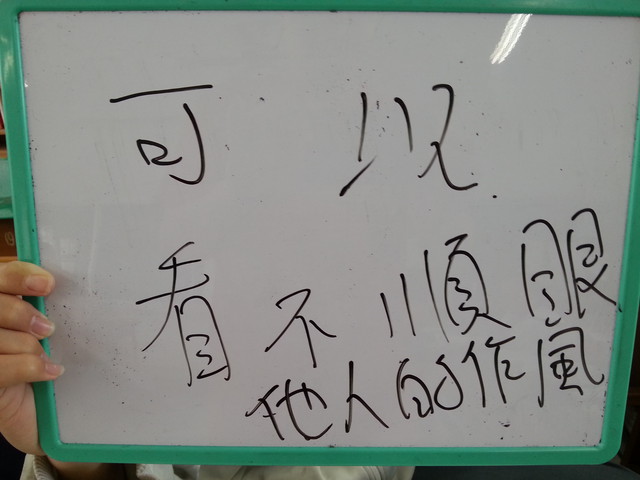 可以
看不順眼
他人的作風